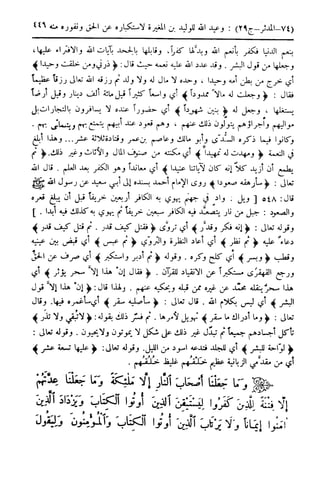 (٧٤-المدثر-ج٢٩) : وعيد الله للوليد بن المغيرة لاستكباره عن الحق ونفوره منه ٤٤٦
بنعم الدنيا فكفر بأنعم الله وبدلها كفراً، وقابلها بالجحد بآيات الله والافتراء عليها،
وجعلها من قول البشر. وقد عدد الله عليه نعمه حيث قال: ﴿ذرني ومن خلقت وحيدا﴾
أي خرج من بطن أمه وحيدا، وحده لا مال له ولا ولد ثم رزقه الله تعالى رزقاً عظيماً
فقال : ﴿وجعلت له مالا ممدوداً﴾ أي واسعاً كثيراً قيل مائة ألف دينار وقيل أرضاً
يستغلها ، وجعل له ﴿بنين شهوداً﴾ أي حضوراً عنده لا يسافرون بالتجارات بل
مواليهم وأجراؤهم يتولون ذلك عنهم ، وهم قعود عند أبيهم يتمتع بهم ويتملى بهم .
وكانوا فيما ذكره السدّى وأبو مالك وعاصم بن عمر وقتادة ثلاثة عشر... وهذا أبلغ
في النعمة ﴿ومهدت له تمهيداً﴾ أي مكنته من صنوف المال والأثاث وغير ذلك. ﴿ثم
يطمع أن أزيد كلا إنه كان لآياتنا عنيدا﴾ أي معانداً وهو الكفر بعد العلم. قال الله
تعالى : ﴿سأرهقه صعودا﴾ روى الإمام أحمد بسنده إلى أبي سعيد عن رسول الله ﷺ
قال: ٥٤٨ [ ويل . واد في جهنم يهوي به الكافر أربعين خريفاً قبل أن يبلغ قعره
والصعود: جبل من نار يتصعّد فيه الكافر سبعين خريفاً ثم يهوي به كذلك فيه أبدا. ]
وقوله تعالى : ﴿إنه فكر وقدّر﴾ أي تروّى ﴿فقتل كيف قدر . ثم قتل كيف قدر﴾
دعاء عليه ﴿ثم نظر﴾ أي أعاد النظرة والتروّي ﴿ثم عبس﴾ أي قبض بين عينيه
وقطّب ﴿وبسر﴾ أي كلح وكره . وقوله ﴿ثم أدبر واستكبر﴾ أي صرف عن الحق
ورجع القهقرى مستكبراً عن الانقياد للقرآن . ﴿فقال إن هذا إلا سحر يؤثر﴾ أي
هذا سحر ينقله محمد عن غيره ممن قبله ويحكيه عنهم . ولهذا قال: ﴿إن هذا إلا قول
البشر﴾ أي ليس بكلام الله . قال تعالى : ﴿سأصليه سقر﴾ أي سأغمره فيها. وقال
تعالى : ﴿وما أدراك ما سقر﴾ تهويل لأمرها . ثم فسّر ذلك بقوله: ﴿لا تبقي ولا تذر﴾
تأكل أجسادهم جميعاً ثم تبدل غير ذلك على شكل لا يموتون ولا يحيون . وقوله تعالى :
﴿لواحة للبشر﴾ أي للجلد فتدعه أسود من الليل. وقوله تعالى: ﴿عليها تسعة عشر﴾
أي من مقدّمي الزبانية عظيم خَلْقُهم غليظ خُلُقُهم .
﴿وَمَا جَعَلْنَا أَصْحَابَ النَّارِ إِلَّا مَلَائِكَةً وَمَا جَعَلْنَا عِدَّتَهُمْ
إِلَّا فِتْنَةً لِلَّذِينَ كَفَرُوا لِيَسْتَيْقِنَ الَّذِينَ أُوتُوا الْكِتَابَ وَيَزْدَادَ الَّذِينَ
آمَنُوا إِيمَانًا وَلَا يَرْتَابَ الَّذِينَ أُوتُوا الْكِتَابَ وَالْمُؤْمِنُونَ وَلِيَقُولَ